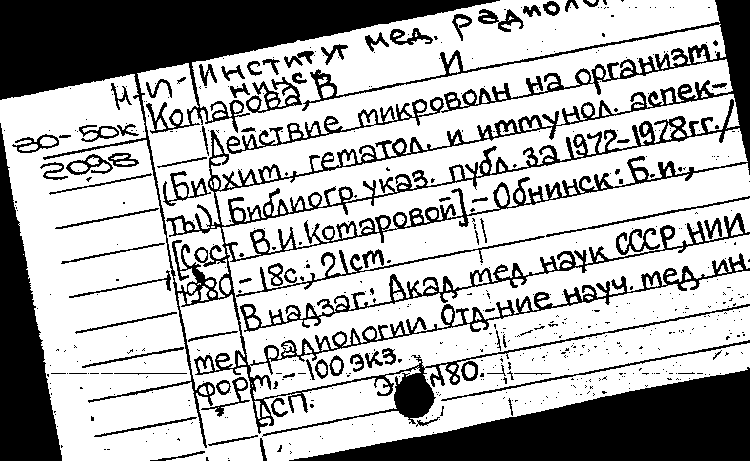 Институт мед. радиоло
нинск
И-п-
Котарова, В И
80-50к
2098
Действие микроволн на организм;
(Биохит., гематол. и иттунол. аспек-
ты). Библиогр. указ. публ. за 1972-1978гг./
[Сост. В.И.Котаровой].- Обнинск: Б.и.,
1980.- 18с.; 21ст.
В надзаг.: Акад. тед. наук СССР, НИИ
тед. радиологии. Отд-ние науч. тед. ин-
форт.- 100 экз.
ДСП. 80.